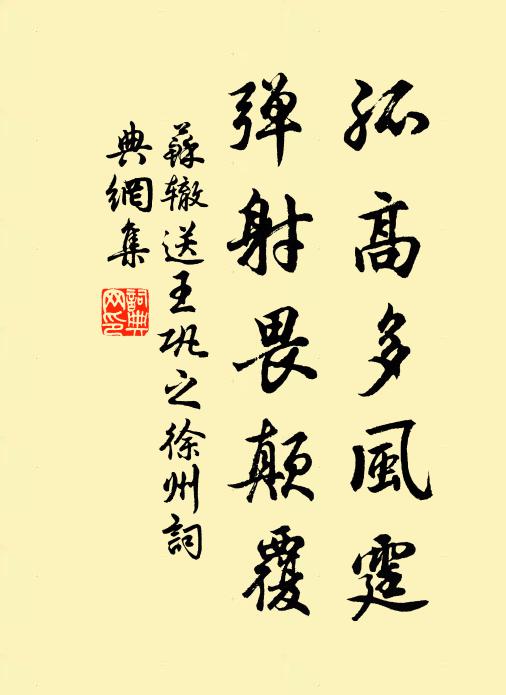 孤高多風霆
弹射畏颠覆
蘇辙送王巩之徐州詞
典網集
詞典網印